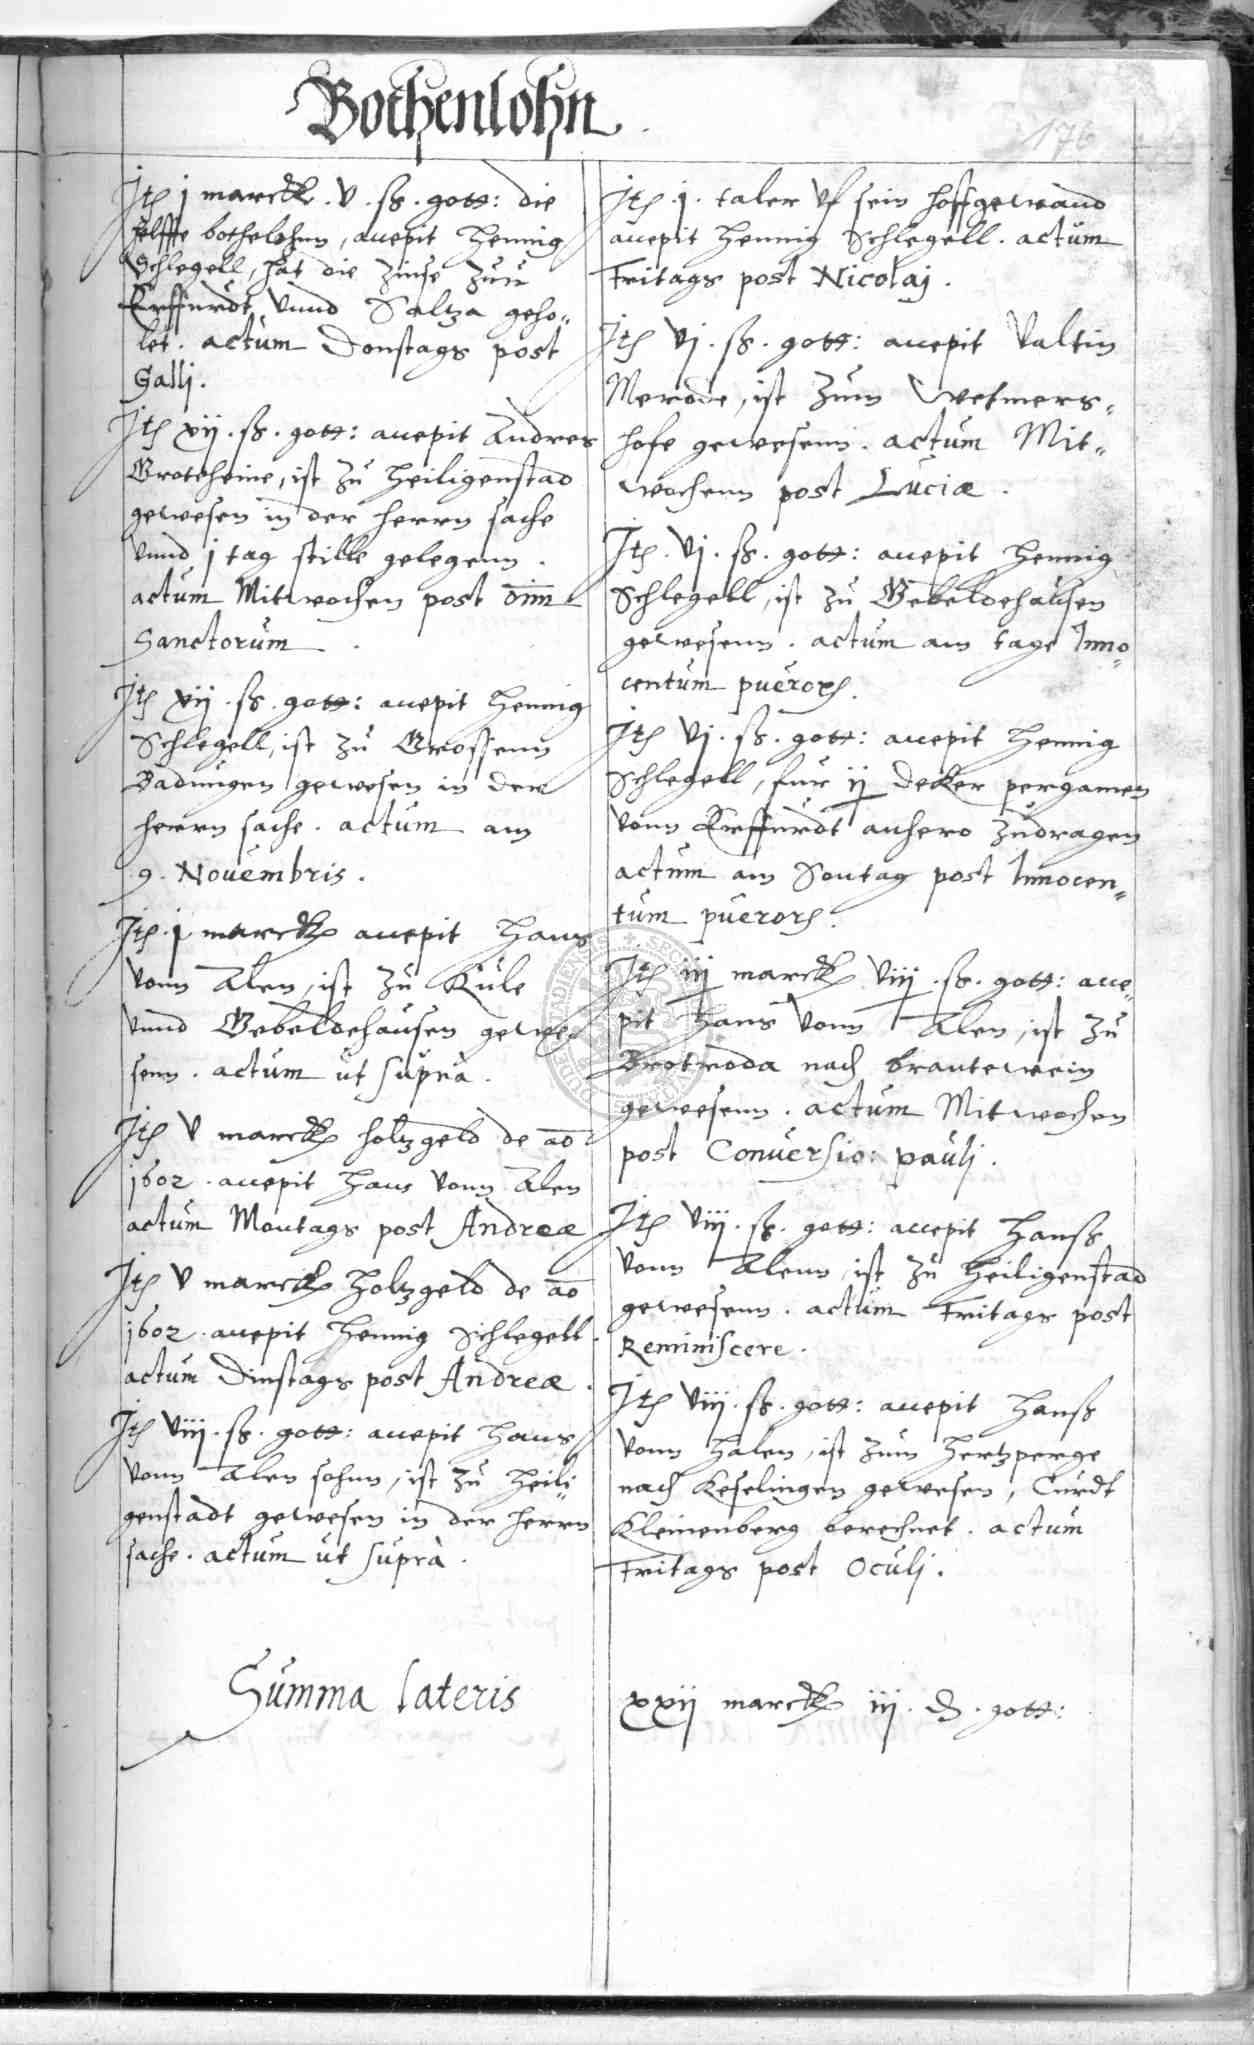 Bothenlohn
176
Itz j marck . v . ß . gott: die
helffte bothelohnn, accepit Hennig
Schlegell, hat die Zinse Zuu
Erffurdt vnnd Saltza geho„
let . actum Donstags post
Galli .
Itz xij . ß . gott: accepit Andres
Groteheine, ist Zu Heiligenstad
gewesen in der herrn sache
vnnd j tag stille gelegenn .
actum Mitwochen post omn
Sanctorum .
Itz xij . ß . gott: accepit Hennig
Schlegell, ist Zu Grossenn
Badungen gewesen in der
herrn sache . actum am
9 . Nouembris .
Itz . j marck accepit Hans
vonn Alen, ist Zu Rule
vnnd Gebeldehausen gewe„
senn . actum ut supra .
Itz v marck holtzgeld de ao
1602 . accepit Hans vonn Alen
actum Montags post Andreæ
Itz v marck Holtzgeld de ao
1602 . accepit Hennig Schlegell .
actum Dinstags post Andreæ .
Itz viij . ß . gott: accepit Hans
vonn Alen sohnn, ist Zu Heili„
genstadt gewesen in der herrn
sache . actum ut supra .
Summa lateris
Itz . j . taler vf sein hoffgewand
accepit Hennig Schlegell . actum
Fritags post Nicolaj .
Itz vj . ß . gott: accepit Valtin
Merode, ist Zum Wetmers„
hofe gewesenn . actum Mit„
wochenn post Luciæ .
Itz . vj . ß . gott: accepit Hennig
Schlegell, ist Zu Gebeldehausen
gewesenn . actum am tage Inno„
centum pueror .
Itz vj . ß . gott: accepit Hennig
Schlegell, fur ij Deker pergamen
vonn Erffurdt anhero Zudragen
actum am Sontag post Innocen„
tum pueror .
Itz iij marck viij . ß . gott: acce„
pit Hans vonn Alen, ist Zu
Brotroda nach brantewein
gewesenn . actum Mitwochen
post Conuersio: pauli .
Itz viij . ß . gott: accepit Hanß
vonn Alenn, ist Zu Heiligenstad
gewesenn . actum Fritags post
Reminiscere .
Itz viij . ß . gott: accepit Hanß
vonn Halen, ist Zum Hertzperge
nach Keselingen gewesen, Curdt
Kleinenberg berechnet . actum
Fritags post Oculi .
xxij marck iij . ₰ . gott: